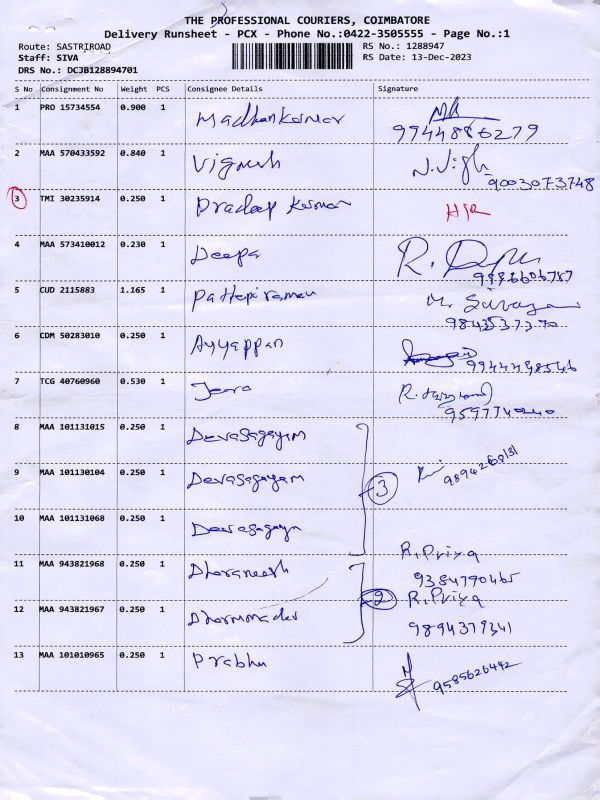 THE PROFESSIONAL COURIERS, COIMBATORE
Delivery Runsheet - PCX - Phone No.:0422-3505555 - Page No.:1
Route: SASTRIROAD RS No.: 1288947
Staff: SIVA RS Date: 13-Dec-2023
DRS No.: DCJB128894701
S No Consignment No Weight PCS Consignee Details Signature
1 PRO 15734554 0.900 1 Madhankumar
9944886279
2 MAA 570433592 0.840 1 Vignesh
9003073748
3 TMI 30235914 0.250 1 Pradeep Kumar
4 MAA 573410012 0.230 1 Deepa
5 CUD 2115883 1.165 1 Pattapiraman
6 CDM 50283010 0.250 1 Ayyappan
7 TCG 40760960 0.530 1
8 MAA 101131015 0.250 1 Devasagayam
9 MAA 101130104 0.250 1 Devasagayam 3
10 MAA 101131068 0.250 1
R.Priya
11 MAA 943821968 0.250 1 Dharaneesh
9384790465
2 R.Priya
12 MAA 943821967 0.250 1
9894379341
13 MAA 101010965 0.250 1 Prabhu
9585626492